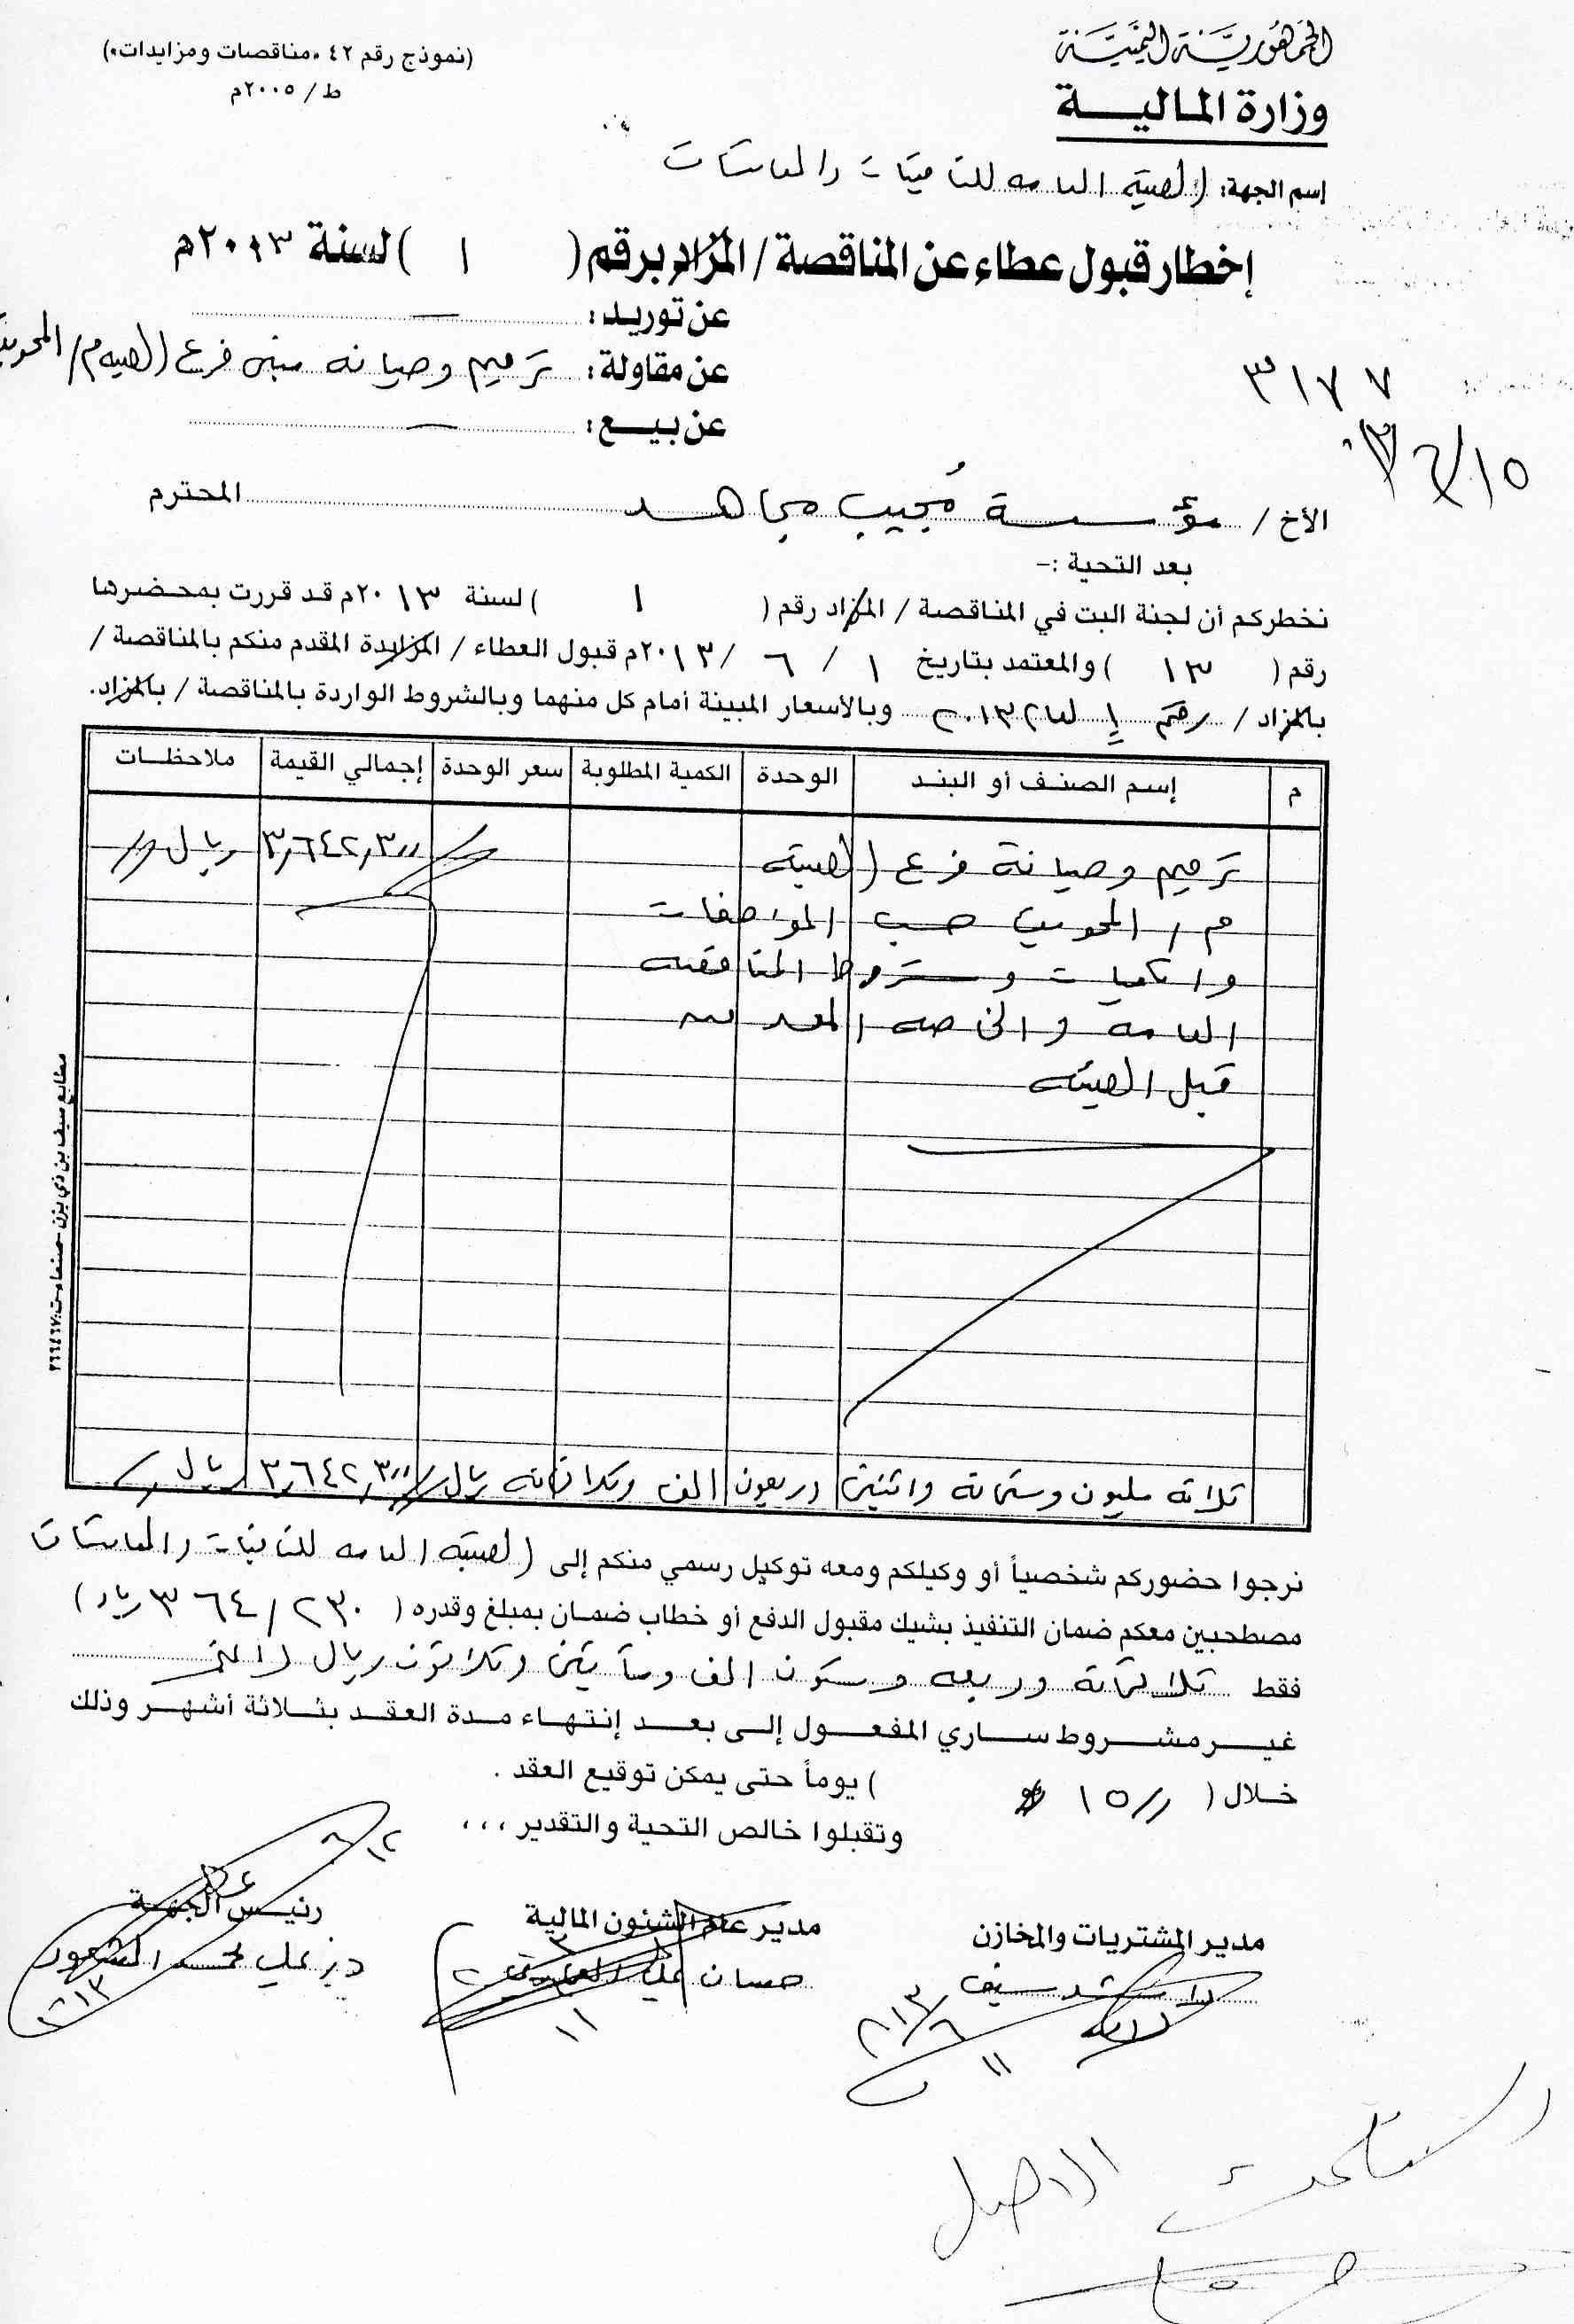 الجمهورية اليمنية
وزارة المالية
(نموذج رقم ٤٢ «مناقصات ومزايدات»)
ط/ ٢٠٠٥م
إسم الجهة: الهيئة العامه للتأمينات والمعاشات
إخطار قبول عطاء عن المناقصة / المزاد برقم ( ١ ) لسنة ٢٠١٣م
عن توريد: —
عن مقاولة: ترميم وصيانه مبنى فرع الهيئه م/ المحويت
عن بيـــع: —
٣١٧٧
الأخ / مؤسسة مُجيب مجاهد المحترم
بعد التحية :–
نخطركم أن لجنة البت في المناقصة / المزاد رقم ( ١ ) لسنة ٢٠١٣م قد قررت بمحضرها
رقم ( ١٣ ) والمعتمد بتاريخ ١ / ٦ / ٢٠١٣م قبول العطاء / المزايدة المقدم منكم بالمناقصة /
بالمزاد / رقم ١ لعام ٢٠١٣م وبالأسعار المبينة أمام كل منهما وبالشروط الواردة بالمناقصة / بالمزاد.
م إسم الصنف أو البند الوحدة الكمية المطلوبة سعر الوحدة إجمالي القيمة ملاحظات
ترميم وصيانة فرع الهيئة ٣,٦٤٢,٣٠٠ ريال
م / المحويت حسب المواصفات
والكميات وشروط المناقصه
العامه والخاصه المعده من
قبل الهيئه
ثلاثه مليون وستمائة واثنين واربعون الف وثلاثمائه ريال ٣,٦٤٢,٣٠٠ ريال
مطابع سيف بن ذي يزن - صنعاء - ت: ٢٦٦٤٦٧
نرجوا حضوركم شخصياً أو وكيلكم ومعه توكيل رسمي منكم إلى الهيئة العامه للتأمينات والمعاشات
مصطحبين معكم ضمان التنفيذ بشيك مقبول الدفع أو خطاب ضمان بمبلغ وقدره ( ٣٦٤/٢٣٠ ريال )
فقط ثلاثمائة واربعه وستون الف ومأيتين وثلاثون ريال لاغير
غير مشروط ساري المفعول إلى بعد إنتهاء مدة العقد بثلاثة أشهر وذلك
خلال ( ١٥ ) يوماً حتى يمكن توقيع العقد .
وتقبلوا خالص التحية والتقدير ،،،
مدير المشتريات والمخازن
مدير عام الشئون المالية
رئيس الجهة
حسان علي
٢٠١٣/٦/١١
الاصل